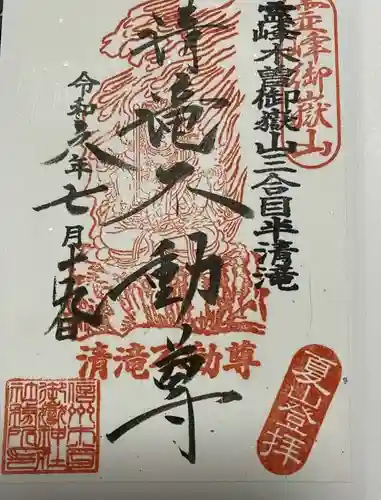 霊峰御嶽山
霊峰木曽御嶽山三合目半清滝
清滝不動尊
令和六年七月十九日
清滝不動尊
夏山登拝